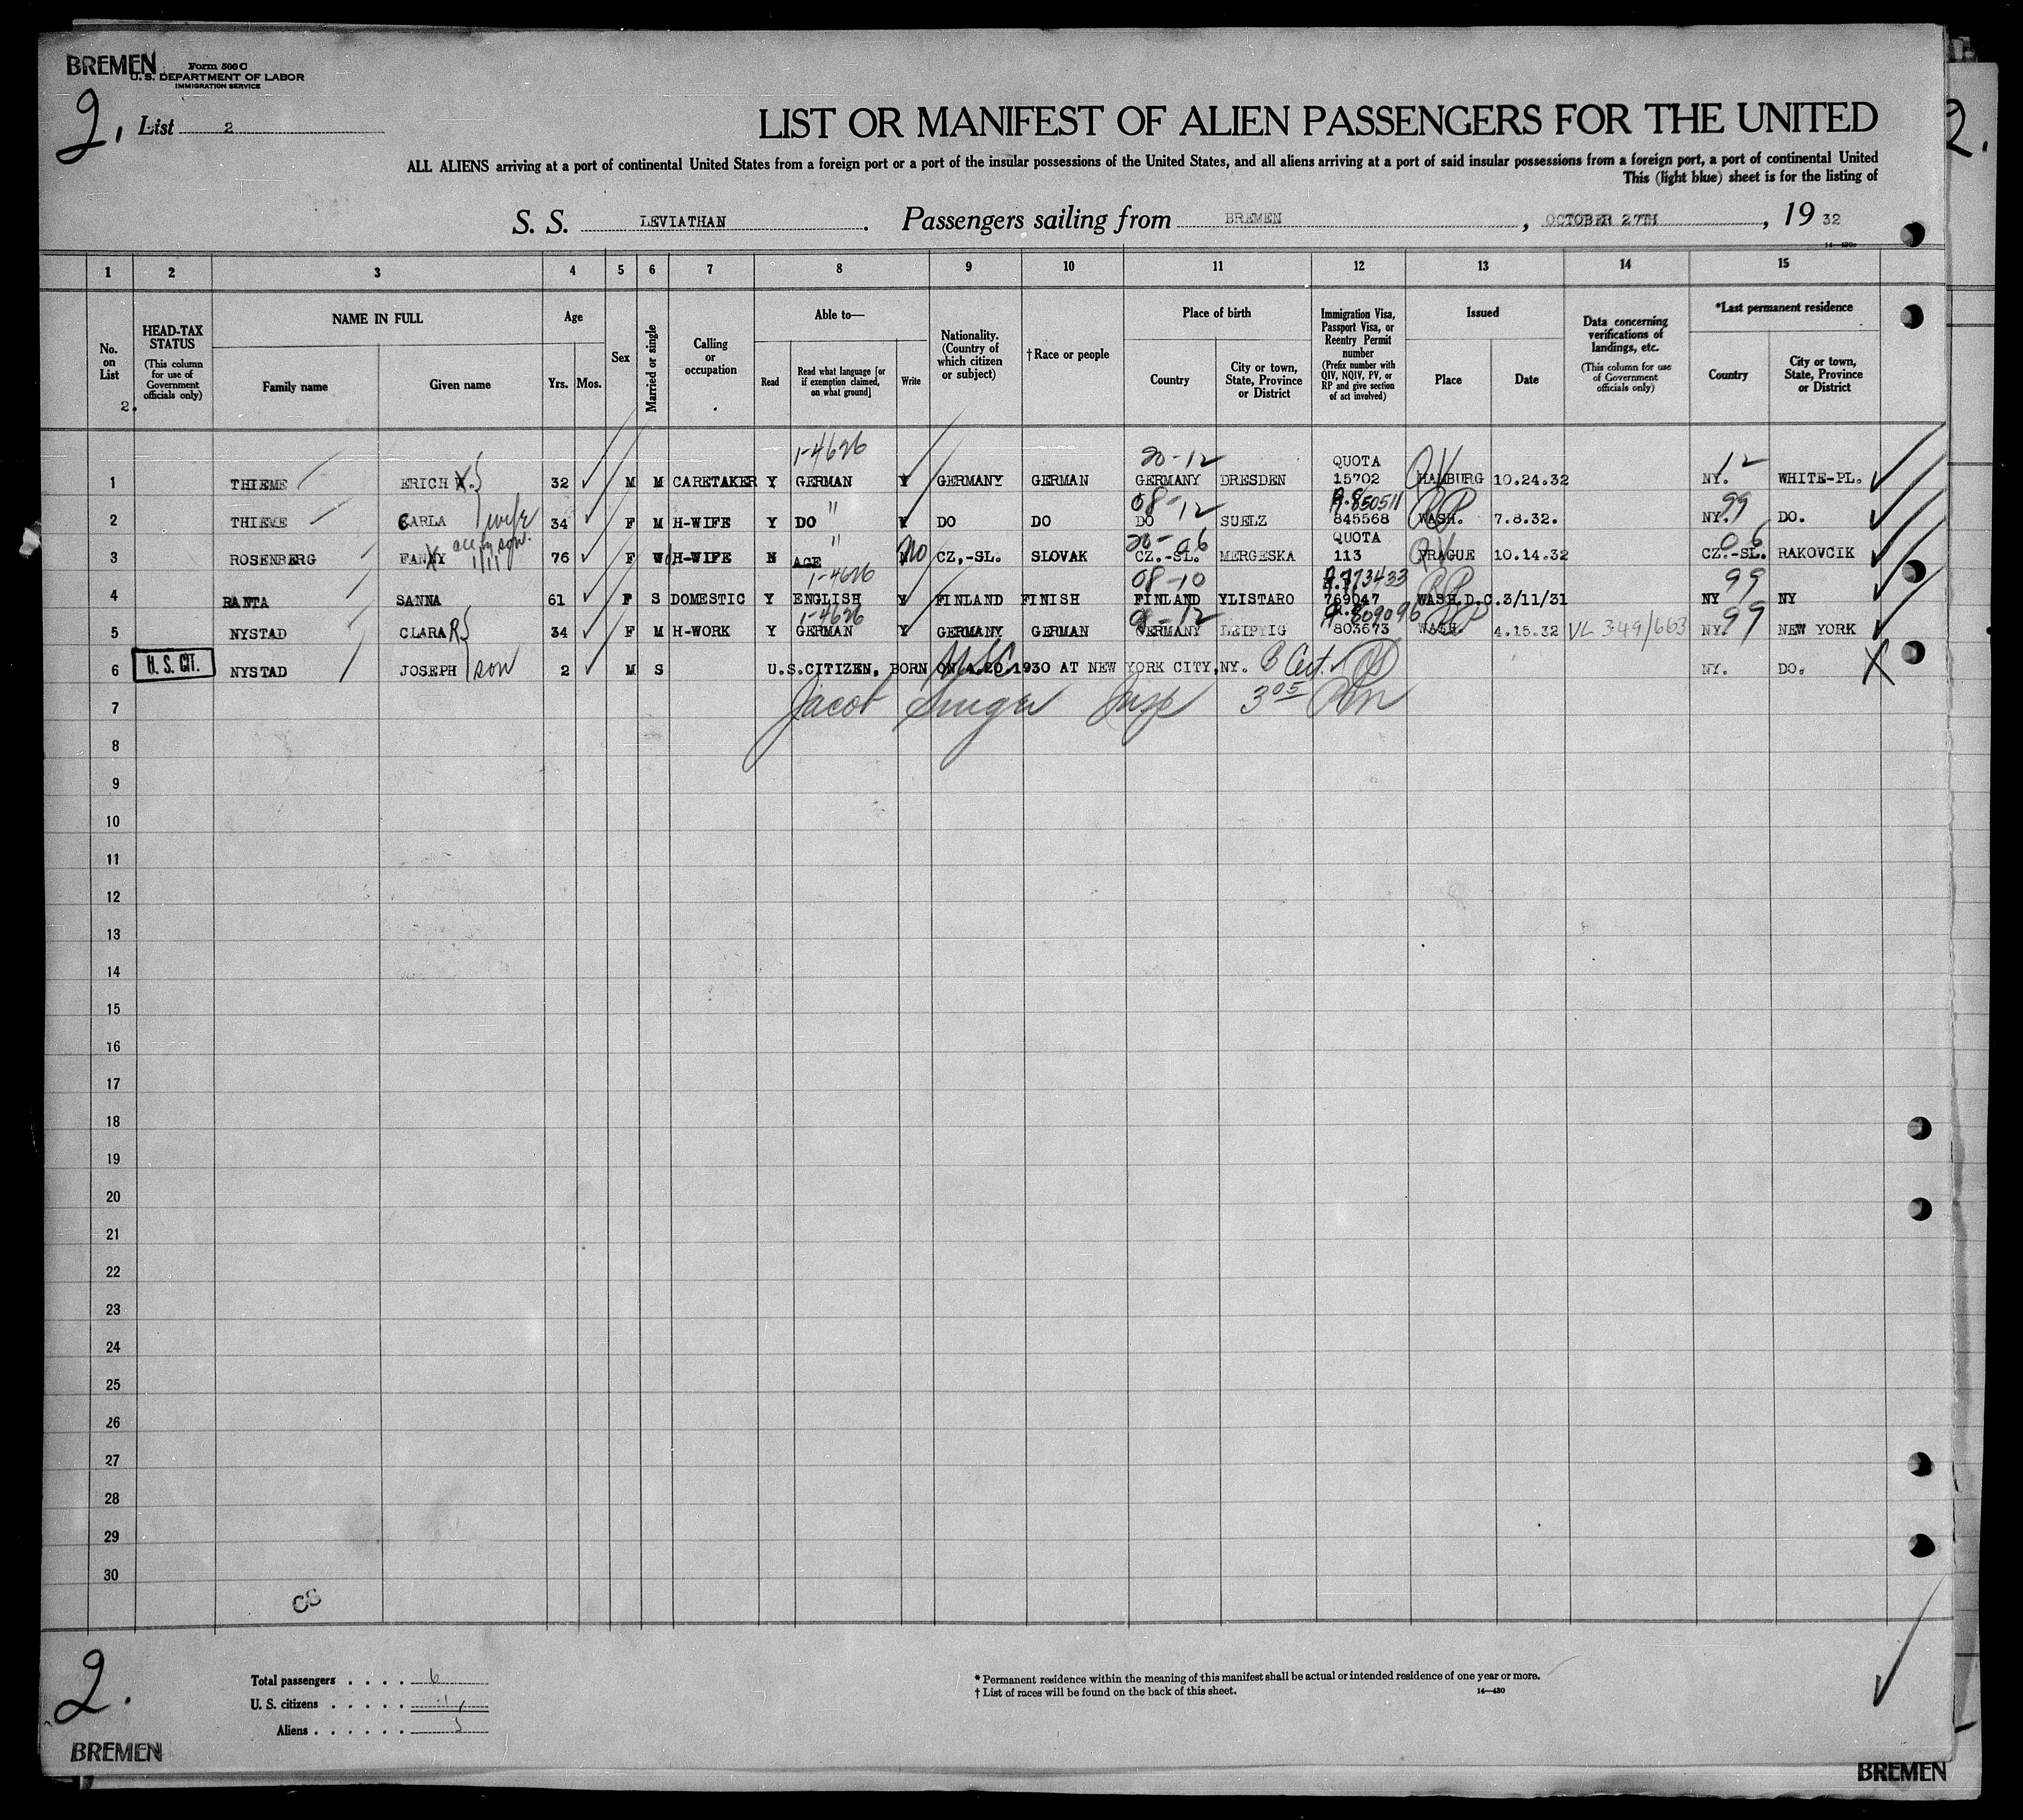 BREMEN
Form 500 C
U. S. DEPARTMENT OF LABOR
IMMIGRATION SERVICE
2. List 2
LIST OR MANIFEST OF ALIEN PASSENGERS FOR THE UNITED
2.
ALL ALIENS arriving at a port of continental United States from a foreign port or a port of the insular possessions of the United States, and all aliens arriving at a port of said insular possessions from a foreign port, a port of continental United
This (light blue) sheet is for the listing of
S. S. LEVIATHAN. Passengers sailing from BREMEN, OCTOBER 27TH, 19 32
1 2 3 4 5 6 7 8 9 10 11 12 13 14 15
No. on List
2.
HEAD-TAX STATUS
(This column for use of Government officials only)
NAME IN FULL
Family name
Given name
Age
Yrs. Mos.
Sex
Married or single
Calling or occupation
Able to—
Read
Read what language [or if exemption claimed, on what ground]
Write
Nationality. (Country of which citizen or subject)
†Race or people
Place of birth
Country
City or town, State, Province or District
Immigration Visa, Passport Visa, or Reentry Permit number
(Prefix number with QIV, NQIV, PV, or RP and give section of act involved)
Issued
Place
Date
Data concerning verifications of landings, etc.
(This column for use of Government officials only)
*Last permanent residence
Country
City or town, State, Province or District
1-4626 20-12 QUOTA 12
1 THIEME ERICH X. 32 M M CARETAKER Y GERMAN Y GERMANY GERMAN GERMANY DRESDEN 15702 QV HAMBURG 10.24.32 NY. WHITE-PL.
" 08-12 850511 99
2 THIEME CARLA wife 34 F M H-WIFE Y DO Y DO DO DO SUELZ 845568 RP WASH. 7.8.32. NY. DO.
" 20-06 QUOTA 06
3 ROSENBERG FANNY 76 F W H-WIFE N AGE N no CZ,-SL. SLOVAK CZ.-SL. MERGESKA 113 QV PRAGUE 10.14.32 CZ.-SL. RAKOVCIK
1-4626 08-10 773433 99
4 RANTA SANNA 61 F S DOMESTIC Y ENGLISH Y FINLAND FINISH FINLAND YLISTARO 769047 RP WASH.D.C. 3/11/31 NY NY
1-4626 8-12 809096 99
5 NYSTAD CLARA R 34 F M H-WORK Y GERMAN Y GERMANY GERMAN GERMANY LEIPYIG 803673 RP WASH. 4.15.32 VL 349/663 NY. NEW YORK
6 NYSTAD JOSEPH son 2 M S U.S.CITIZEN, BORN ON 4.20.1930 AT NEW YORK CITY,NY. USC B Cert. NY. DO.
7 Jacob Singer Insp 305 Pm
8
9
10
11
12
13
14
15
16
17
18
19
20
21
22
23
24
25
26
27
28
29
30
2.
Total passengers . . . . 6
U. S. citizens . . . . . 1
Aliens . . . . . . 5
* Permanent residence within the meaning of this manifest shall be actual or intended residence of one year or more.
† List of races will be found on the back of this sheet.
14—430
BREMEN
BREMEN